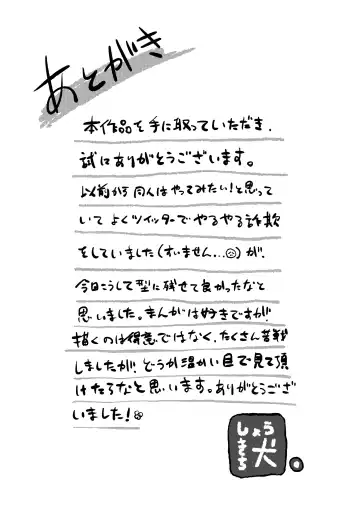 あとがき
本作品を手に取っていただき、
誠にありがとうございます。
以前から同人はやってみたい!と思って
いて よくツイッターでやるやる詐欺
をしていました(すいません...☹)が、
今回こうして型に残せて良かったなと
思いました。まんがは好きですが
描くのは得意ではなく、たくさん苦戦
しましたが、どうか温かい目で見て頂
けたらなと思います。ありがとうござ
いました!
しょうさち犬。